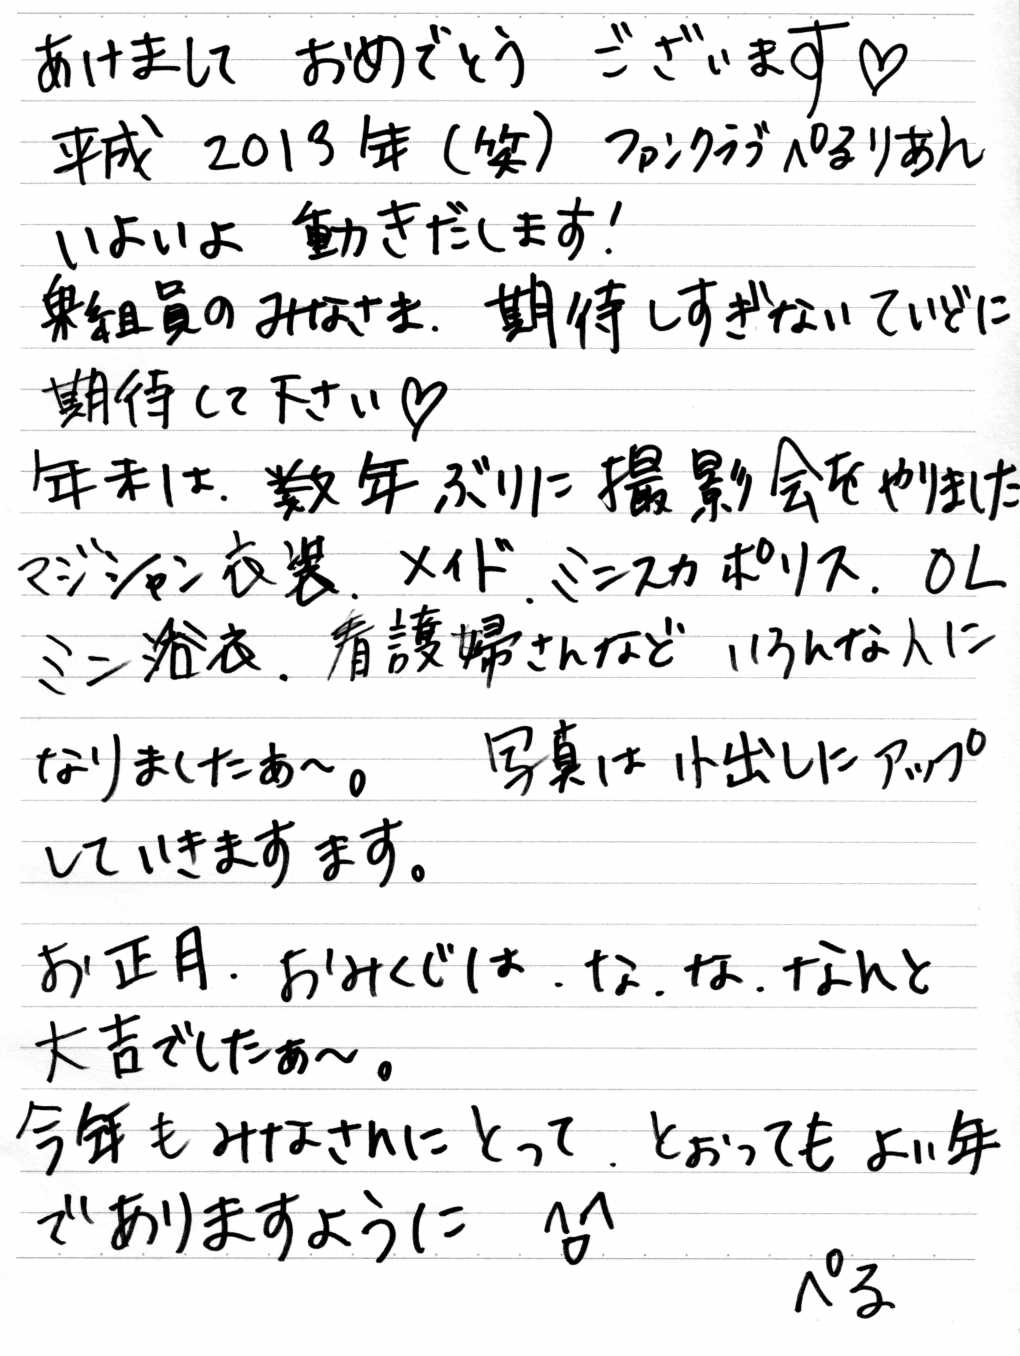 あけまして おめでとう ございます♡
平成 2013年(笑) ファンクラブぺるりあん
いよいよ 動きだします!
組員のみなさま. 期待しすぎないていどに
期待して下さい♡
年末は、数年ぶりに撮影会をやりました
マジシャン衣装、メイド、ミニスカポリス、OL
ミニ浴衣、看護婦さんなど いろんな人に
なりましたぁ〜。 写真は小出しにアップ
していきますます。
お正月、おみくじは、な、な、なんと
大吉でしたぁ〜。
今年もみなさんにとって、とぉってもよい年
でありますように ^o^
ぺる